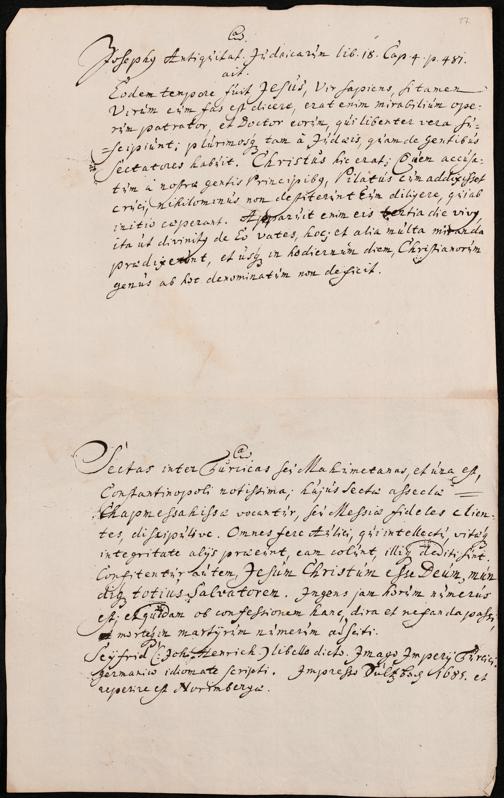 17.
Josephq Antiquitat. Judaicarum lib. 18. Cap 4. p. 481.
ait.
Eodem tempore fuit JESUS, Vir sapiens, si tamen
Virum eum fas est dicere, erat enim mirabilium ope-
rum patrator, et Doctor eorum, qui libenter vera su-
scipiunt; plurimosq tam à Judæis, quam de gentibus
Sectatores habuit. Christus hic erat; Quem accusa-
tum a nostræ gentis Principibq, Pilatus cum addixisset
cruci, nihilominus non destiterunt Eum diligere, qui ab
initio cæperant. Apparuit enim eis tertia die vivq
ita ut divinitq de Eo vates, hoc; et alia multa miranda
prædixerunt, et usq in hodiernum diem, Christianorum
genus ab hoc denominatum non deficit.
Sectas inter Turcicas seu Mahumetanas, et una est,
Constantinopoli notissima; hujus Sectæ asseclæ
Chapmessahissæ vocantur, seu Messiæ fideles clien-
tes, discipulive. Omnes fere Aulici, qui intellectu, vitæq
integritate alijs præeunt, eam colunt, illiq dediti sunt.
Confitentur autem, Jesum Christum esse Deum, mun
diq totius Salvatorem. Ingens jam horum numerus
est; et quidam ob confessionem hanc, dira et nefanda passi,
mortem martyrum numerum adsciti.
Seyfrid (: Joh. Henrich :) libello dicto. Imago Imperij Turcici,
germanico idiomate scripti. Impresso Sultzbag 1685. et
reperire est Norimbergæ.